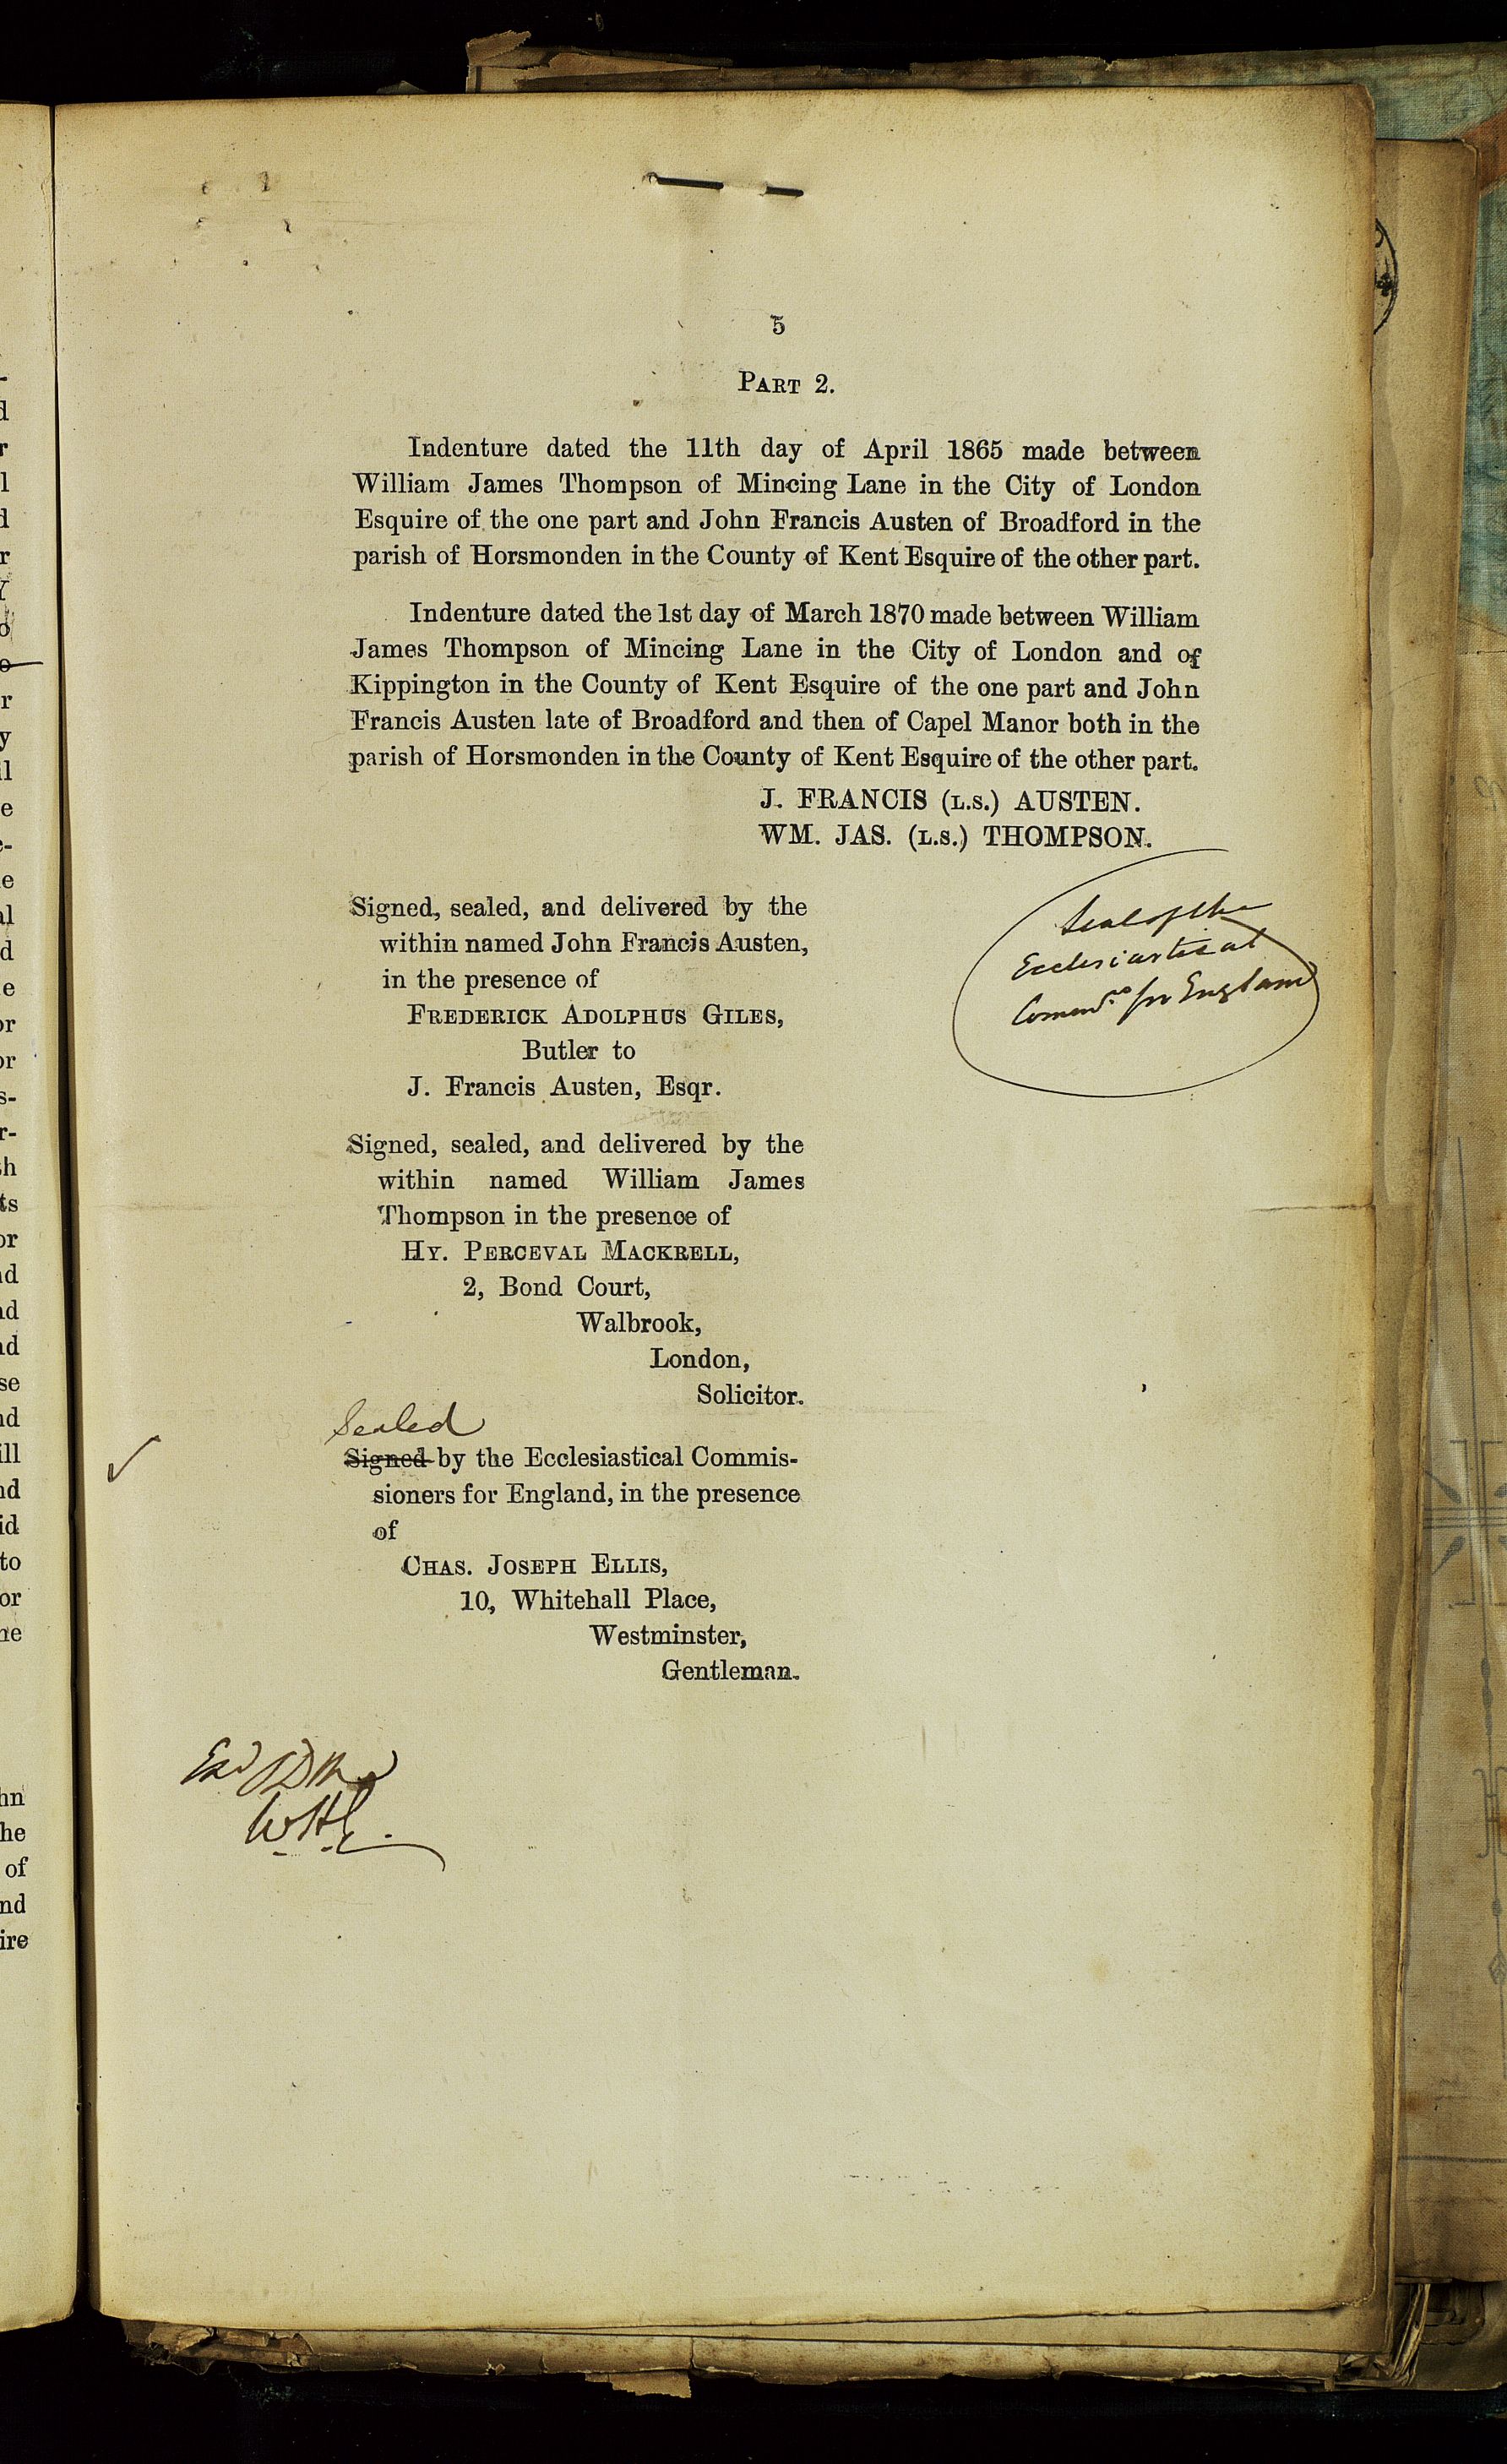 5
PART 2.
Indenture dated the 11th day of April 1865 made between
William James Thompson of Mincing Lane in the City of London
Esquire of the one part and John Francis Austen of Broadford in the
parish of Horsmonden in the County of Kent Esquire of the other part.
Indenture dated the 1st day of March 1870 made between William
James Thompson of Mincing Lane in the City of London and of
Kippington in the County of Kent Esquire of the one part and John
Francis Austen late of Broadford and then of Capel Manor both in the
parish of Horsmonden in the County of Kent Esquire of the other part.
J. FRANCIS (L.S.) AUSTEN.
WM. JAS. (L.S.) THOMPSON.
Seal of the
Ecclesiastical
for England
Signed, sealed, and delivered by the
within named John Francis Austen,
in the presence of
FREDERICK ADOLPHUS GILES,
Butler to
J. Francis Austen, Esqr.
Signed, sealed, and delivered by the
within named William James
Thompson in the presence of
HY. PERCEVAL MACKRELL,
2, Bond Court,
Walbrook,
London,
Solicitor.
Sealed
Signed by the Ecclesiastical Commis-
sioners for England, in the presence
of
CHAS. JOSEPH ELLIS,
10, Whitehall Place,
Westminster,
Gentleman.